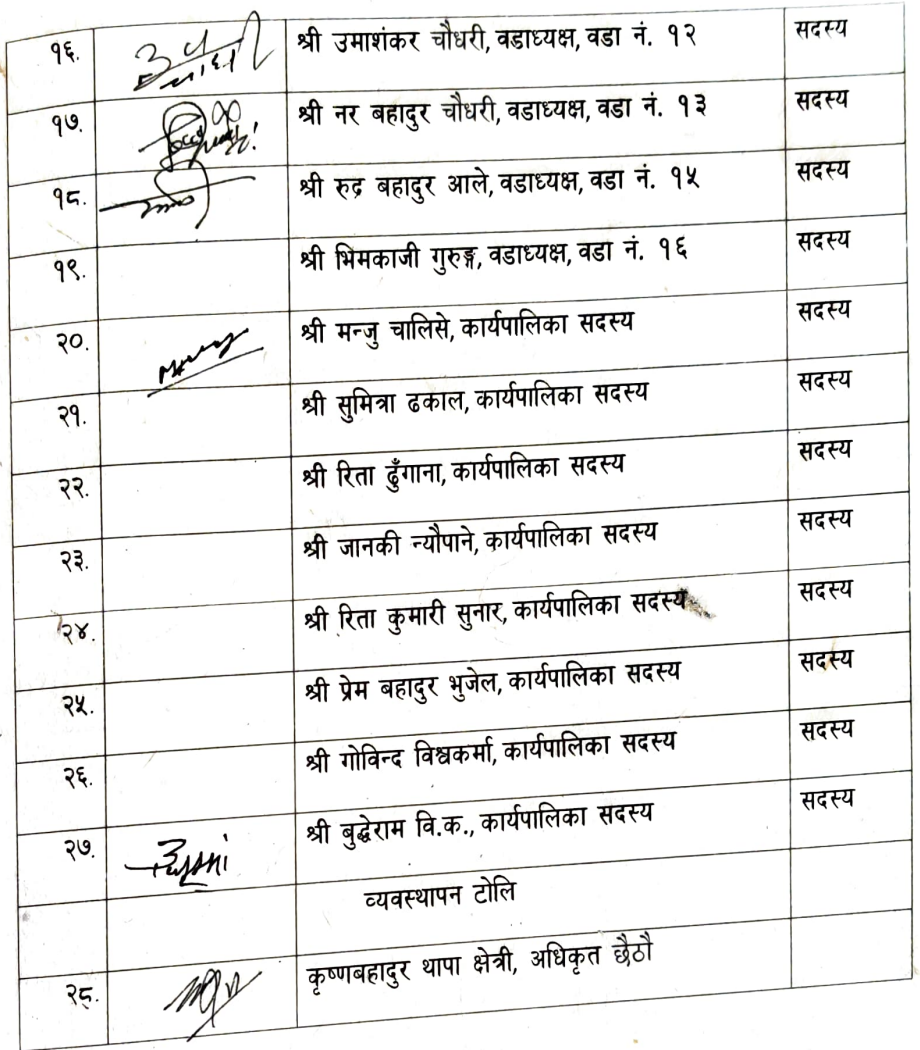 १६. श्री उमाशंकर चौधरी, वडाध्यक्ष, वडा नं. १२ सदस्य
१७. श्री नर बहादुर चौधरी, वडाध्यक्ष, वडा नं. १३ सदस्य
१८. श्री रुद्र बहादुर आले, वडाध्यक्ष, वडा नं. १५ सदस्य
१९. श्री भिमकाजी गुरुङ्ग, वडाध्यक्ष, वडा नं. १६ सदस्य
२०. श्री मन्जु चालिसे, कार्यपालिका सदस्य सदस्य
२१. श्री सुमित्रा ढकाल, कार्यपालिका सदस्य सदस्य
२२. श्री रिता ढुँगाना, कार्यपालिका सदस्य सदस्य
२३. श्री जानकी न्यौपाने, कार्यपालिका सदस्य सदस्य
२४. श्री रिता कुमारी सुनार, कार्यपालिका सदस्य सदस्य
२५. श्री प्रेम बहादुर भुजेल, कार्यपालिका सदस्य सदस्य
२६. श्री गोविन्द विश्वकर्मा, कार्यपालिका सदस्य सदस्य
२७. श्री बुद्धेराम वि.क., कार्यपालिका सदस्य सदस्य
व्यवस्थापन टोलि
२८. कृष्णबहादुर थापा क्षेत्री, अधिकृत छैठौ